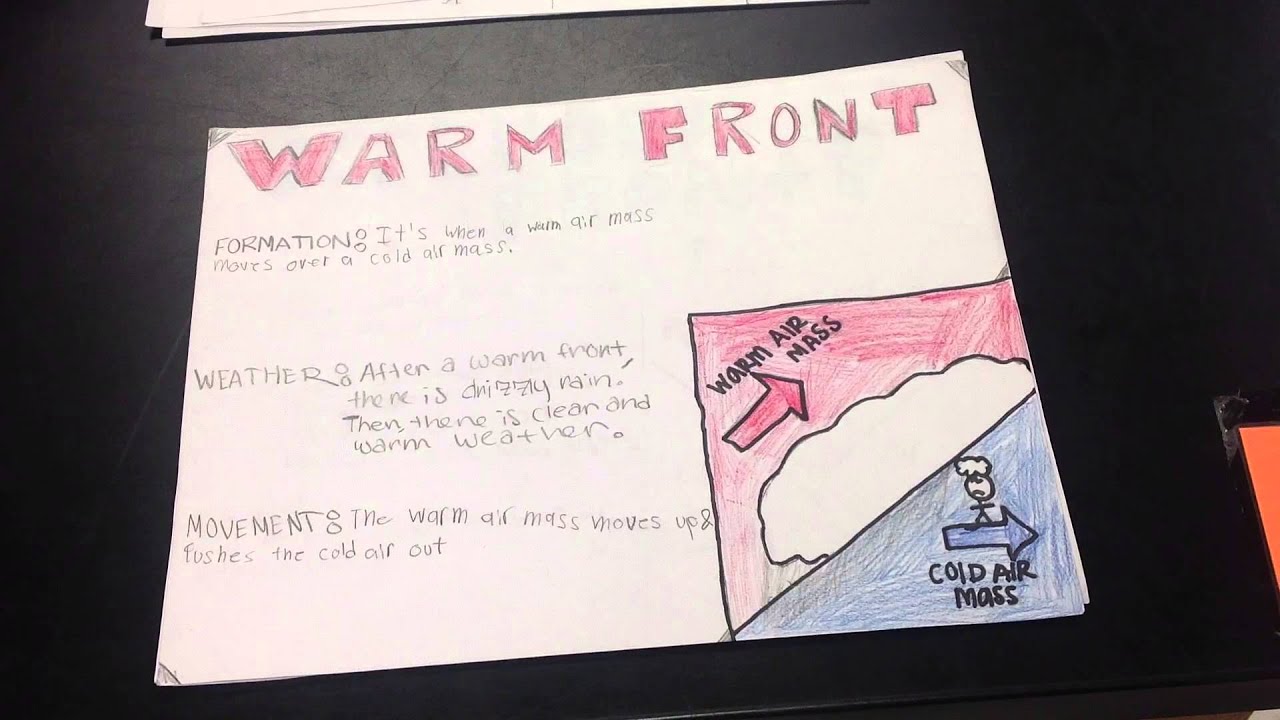 WARM FRONT
FORMATION: It's when a warm air mass
moves over a cold air mass.
WEATHER: After a warm front,
there is drizzly rain.
Then, there is clear and
warm weather.
MOVEMENT: The warm air mass moves up &
Pushes the cold air out
WARM AIR
MASS
COLD AIR
MASS